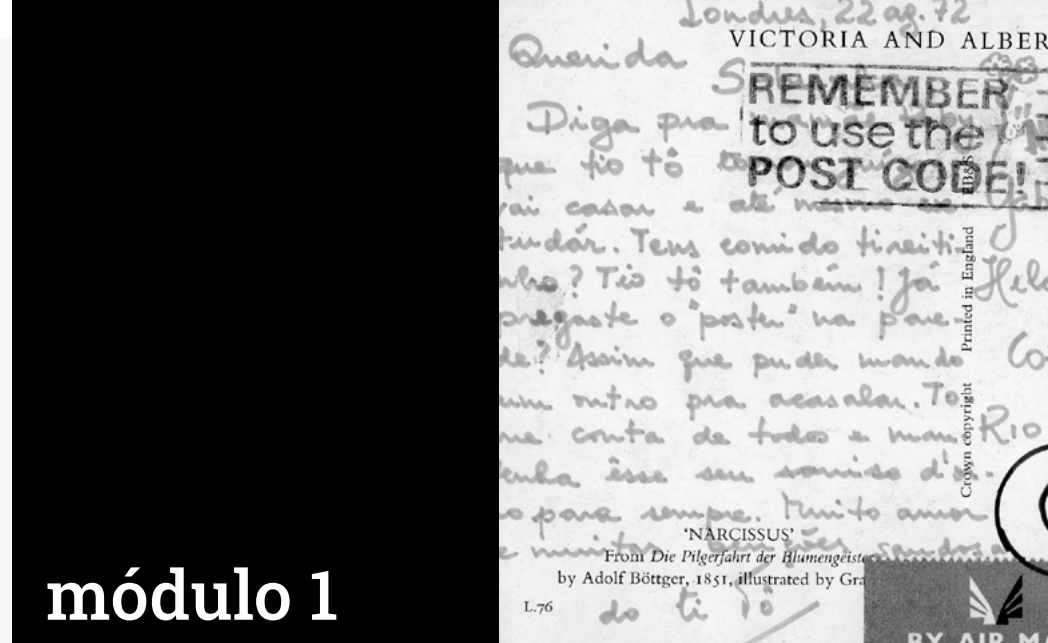 Londres, 22 ag. 72
VICTORIA AND ALBER
Querida
REMEMBER
to use the
POST CODE!
Diga pra
que tio tô
vai casar e até mesmo
tudar. Tens comido tireiti-
nho? Tio tô também! Já
pregaste o "poster" na pare-
de? Assim que puder mando
um outro pra acasalar. To
me conta de todos e man
tenha êsse seu sorriso
para sempre. Muito amor
e muitas
do ti Tô
Rio
Co
Printed in England
Crown copyright
'NARCISSUS'
From Die Pilgerfahrt der Blumengeister
by Adolf Böttger, 1851, illustrated by Gra
L.76
BY AIR M
módulo 1